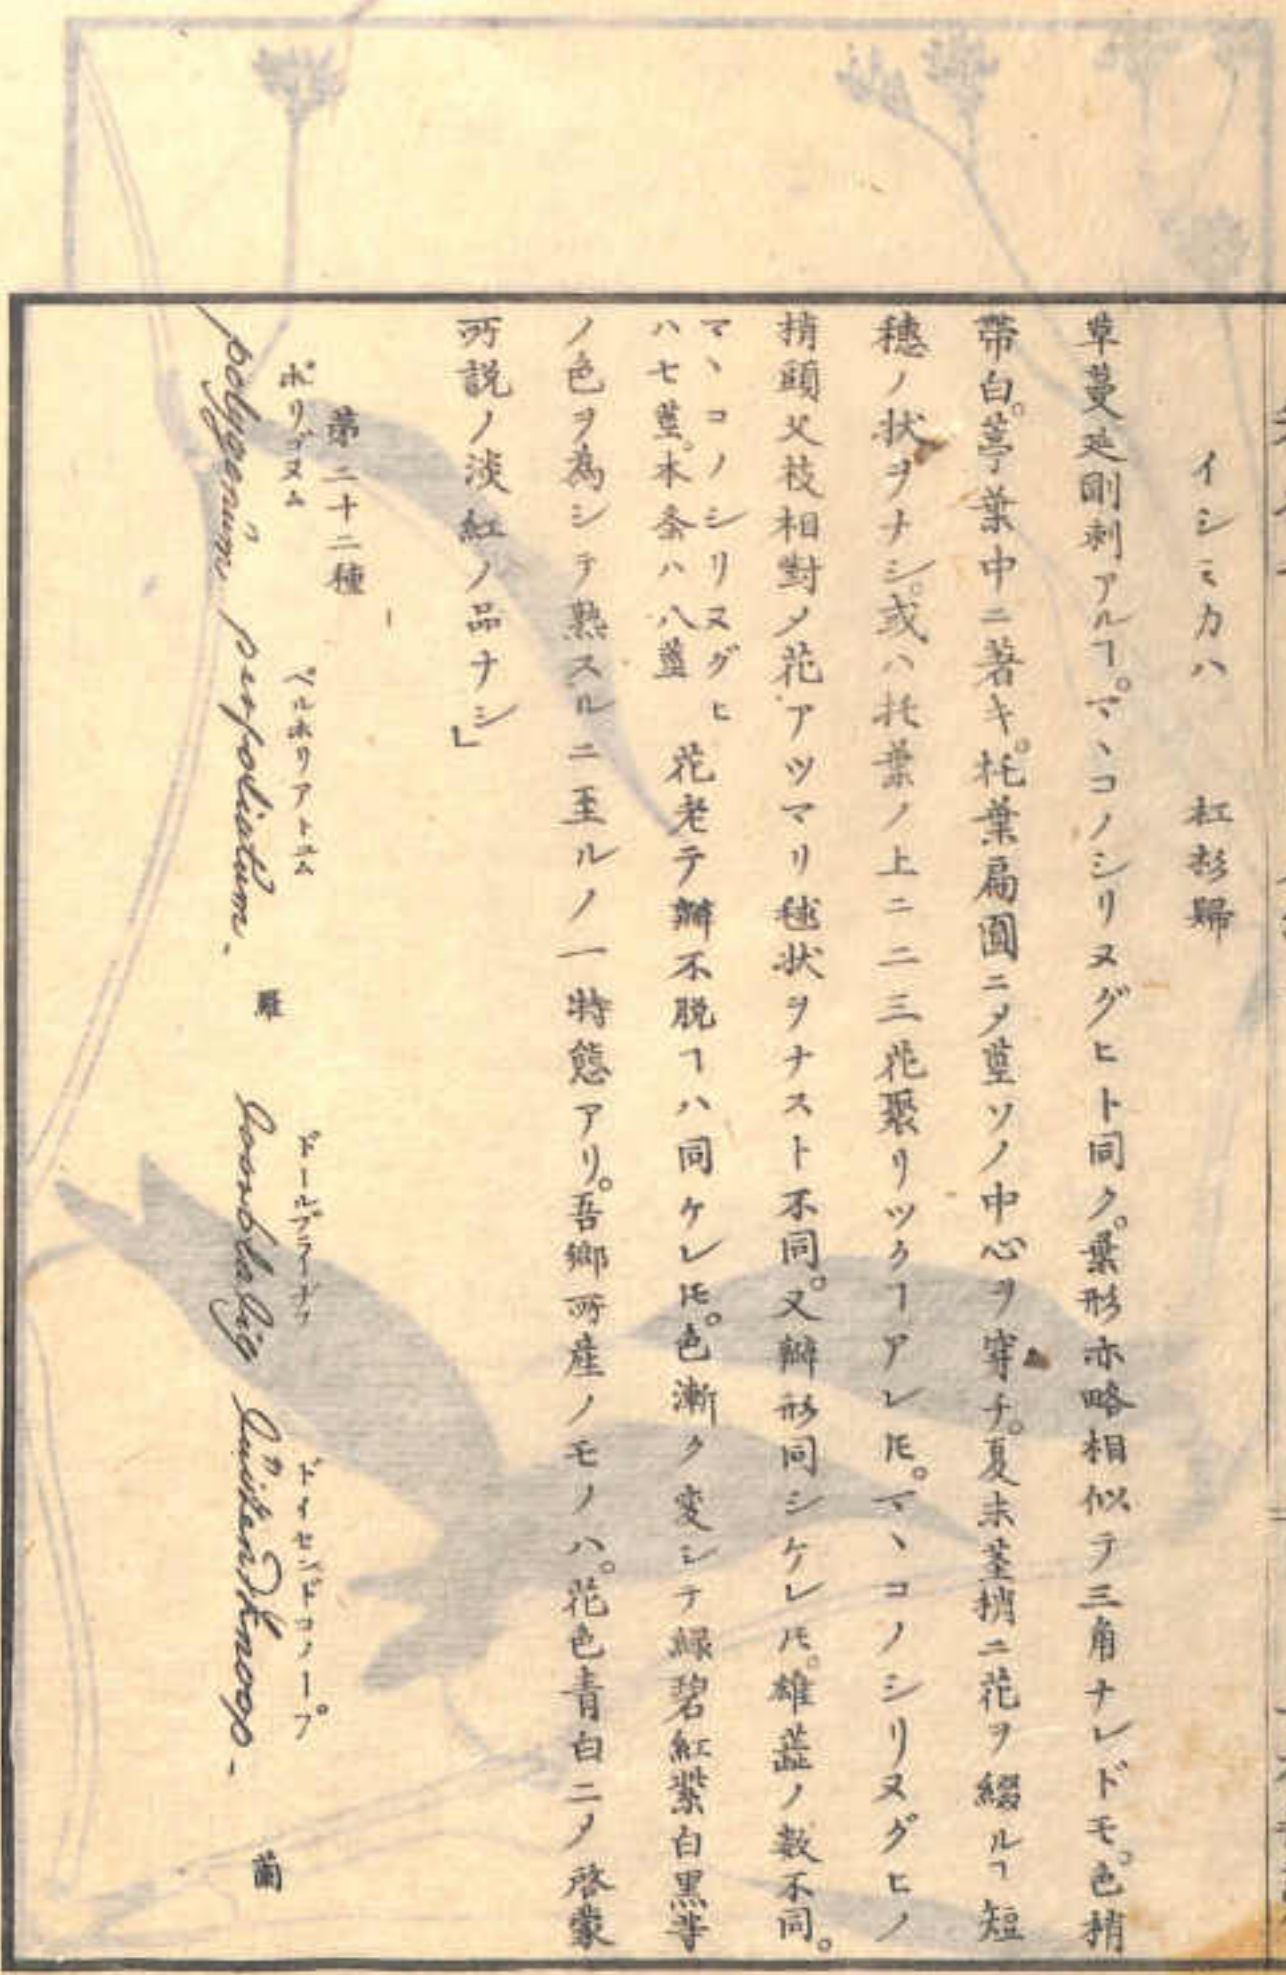 イシミカハ　杠杉歸
草蔓延剛刺アルヿ。マヽコノシリヌグヒト同ク。葉形亦略相似テ三角ナレドモ。色稍
帶白。莖葉中ニ著キ。托葉扁圓ニメ莖ソノ中心ヲ穿チ。夏末莖梢ニ花ヲ綴ルヿ短
穗ノ状ヲナシ。或ハ托葉ノ上ニ二三花聚リツクヿアレ𪜈。マヽコノシリヌグヒノ
梢頭父枝相對メ花アツマリ毬状ヲナスト不同。又瓣形同シケレ𪜈。雄蕋ノ數不同。
マヽコノシリヌグヒ
ハ七蕋。本条ハ八蕋
花老テ瓣不脱ヿハ同ケレ𪜈。色漸ク変シテ緑碧紅紫白黒等
ノ色ヲ為シテ熟スルニ至ルノ一特態アリ。吾郷所産ノモノハ。花色青白ニメ啓蒙
所説ノ淡紅ノ品ナシ」
第二十二種
ポリゴヌム　ペルホリアトユム　ドールブラーヂフ　ドイセンドコノープ
polygonŭm perfoliatum. 羅 Doorbladig Duizendknoop. 蘭